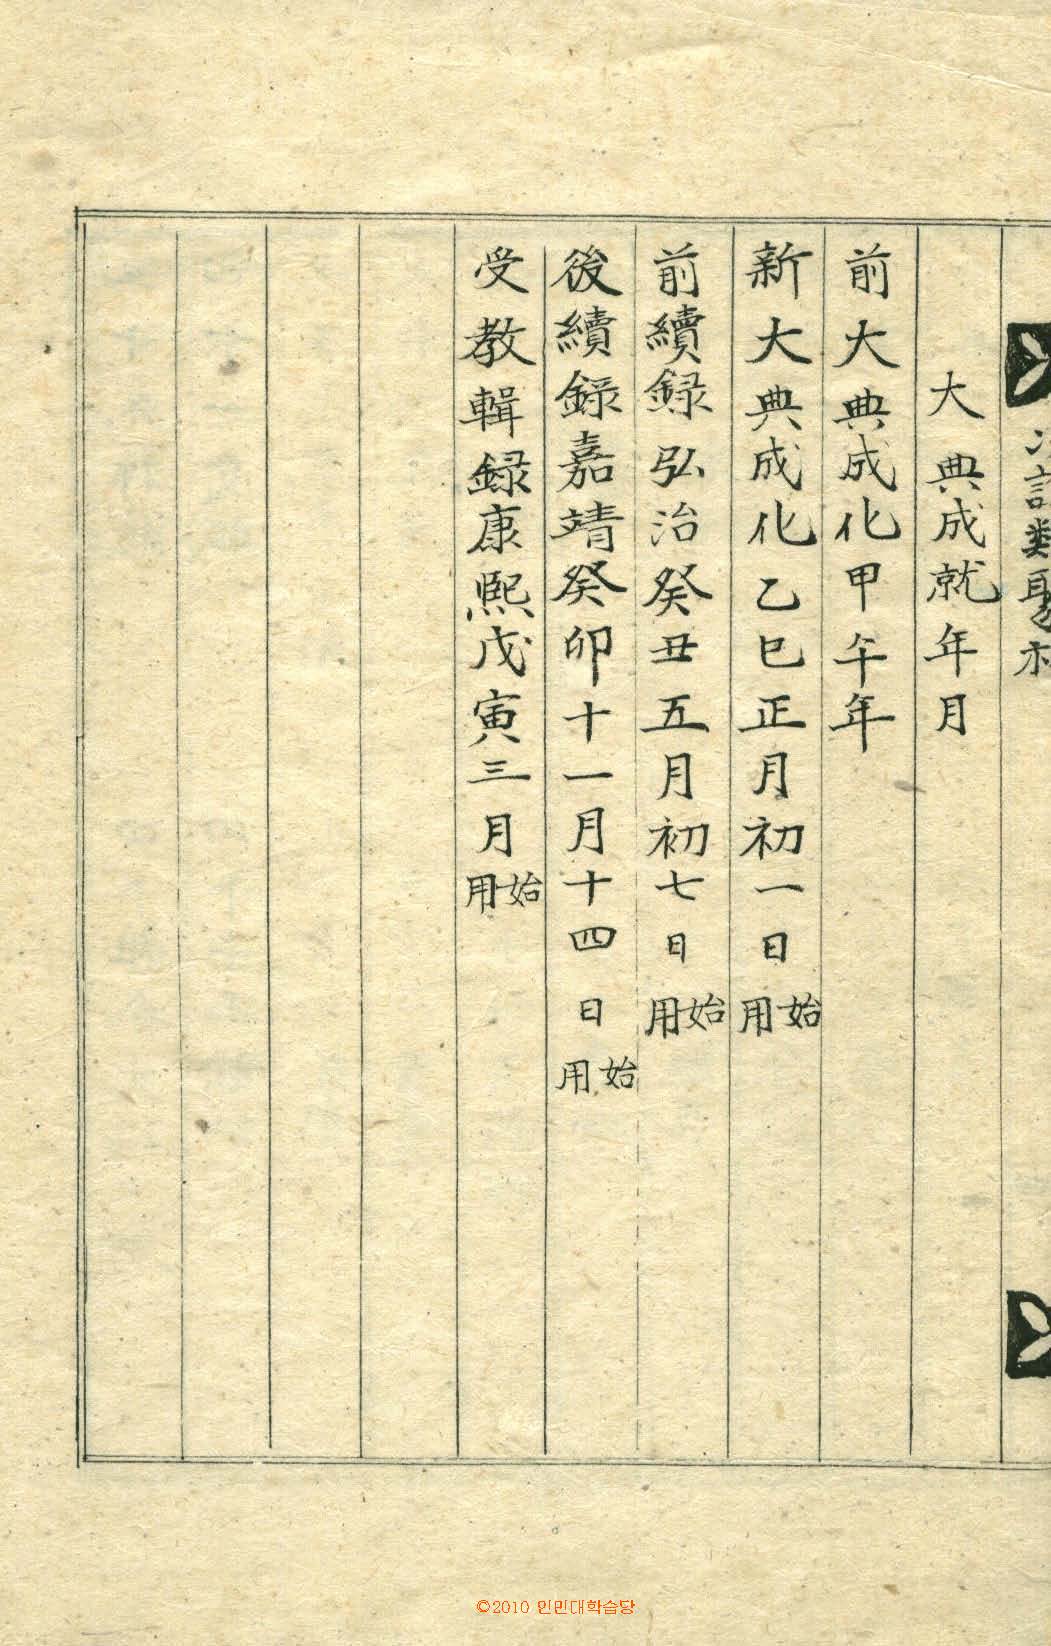 大典成就年月
前大典成化甲午年
新大典成化乙巳正月初一日始用
前續録弘治癸丑五月初七日始用
後續録嘉靖癸卯十一月十四日始用
受教輯録康熙戊寅三月始用
©2010 인민대학습당